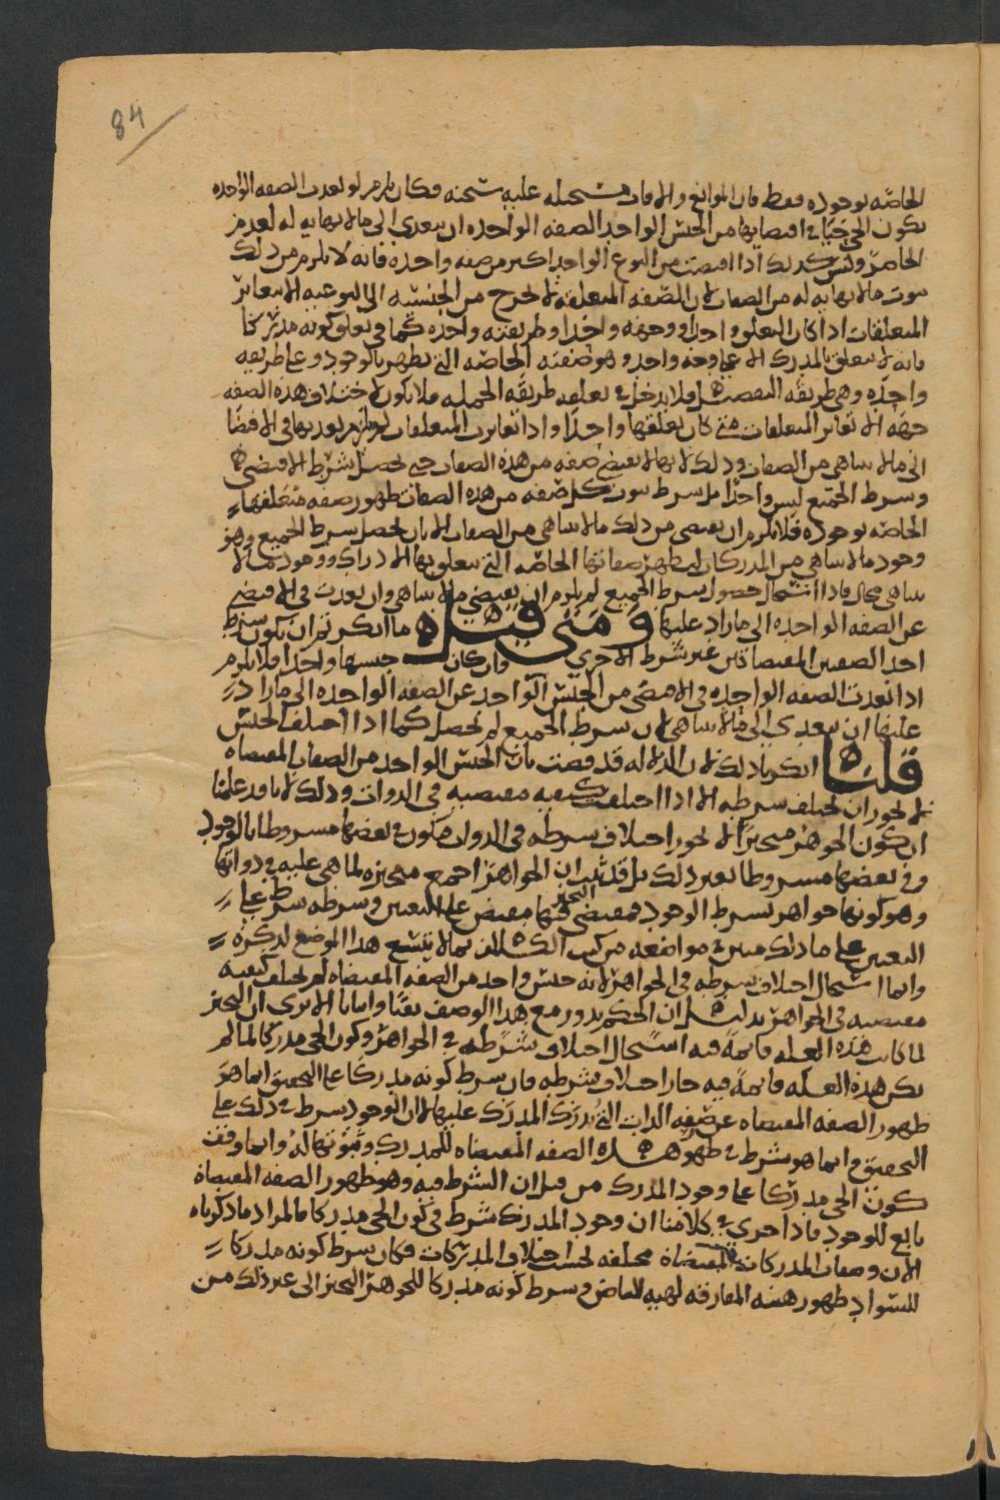 84
الخاصه بوجوده فقط فان الموانع والافات مستحيله عليه سبحنه فكان يلزم لو تعدت الصفه الواحده
بكون الحي حيا في اقتضايها من الجنس الواحد الصفه الواحده ان تتعدى الى مالا نهايه له لعدم
الحاصر وليس كذلك اذا اقتضت من النوع الواحد اكثر من صفه واحده فانه لا يلزم من ذلك
ثبوت مالا نهايه له من الصفات لان الصفه المتعلقه لا تخرج من الجنسيه الى النوعيه الا بتغاير
المتعلقات اذا كان التعلق واحدا ووجهه واحدا وطريقته واحده كما في تعلق كونه مدركا
فانه لا يتعلق بالمدرك الا على وجه واحد وهو صفته الخاصه التي تظهر بالوجود وعلى طريقه
واحده وهي طريقه التفصيل فلا يدخل في تعلقه طريقه الجمله فلا يكون لاختلاف هذه الصفه
جهه الا تغاير المتعلقات متى كان تعلقها واحدا واذا تغايرت المتعلقات لم يلزم تعديها في الاقتضا
الى مالا يتناهى من الصفات وذلك لانها لا تقتضي صفه من هذه الصفات حتى يحصل شرط الاقتضى لها
وشرط الجميع ليس واحدا بل شرط ثبوت كل صفه من هذه الصفات ظهور صفه متعلقها
الخاصه بوجوده فلا يلزم ان يقتضي من ذلك مالا يتناهى من الصفات الا بان يحصل شرط الجميع وهو
وجود مالا يتناهى من المدركات لتظهر صفاتها الخاصه التي يتعلق بها الادراك ووجود مالا
يتناهى محال فاذا استحال حصول شرط الجميع لم يلزم ان يقتضي مالا يتناهى وان تعدت في الاقتضى
عن الصفه الواحده الى مازاد عليها ومتى قيل ما انكرتم ان يكون شرط
احد الصفتين المقتضاتين غير شرط الاخرى وان كان جنسها واحدا فلا يلزم
اذا تعدت الصفه الواحده في الاقتضى من الجنس الواحد عن الصفه الواحده الى مازاد
عليها ان تتعدى الى مالا يتناهى لان شرط الجميع لم يحصل كما اذا اختلف الجنس
قلنا انكرنا ذلك لان الدلاله قد قضت بان الجنس الواحد من الصفات المقتضاه
لا يجوز ان يختلف شرطه الا اذا اختلف كيفيه مقتضيه في الذوات وذلك لانا قد علمنا
ان كون الجوهر متحيزا لا يجوز اختلاف شرطه في الذوات فيكون في بعضها مشروطا بالوجود
وفي بعضها مشروطا بغير ذلك بل قد ثبت ان الجواهر اجمع متحيزه لما هي عليه في ذواتها
وهو كونها جواهر بشرط الوجود فمقتضى التحيز فيها مقتض على التعيين وشرطه شرط على
التعيين على ما ذلك مبين في مواضعه من كتب الكلام بمالا يتسع هذا الموضع لذكره
وانما استحال اختلاف شرطه في الجواهر لانه جنس واحد من الصفه المقتضاه لم يختلف كيفيه
مقتضيه في الجواهر بدليل ان الحكم يدور مع هذا الوصف نفيا واثباتا الا ترى ان التحيز
لما كانت هذه العله قائمة فيه استحال اختلاف شرطه في الجواهر وكون الحي مدركا لما لم
تكن هذه العله قائمة فيه جاز اختلاف شرطه فان شرط كونه مدركا على التحقيق انما هو
ظهور الصفه المقتضاه عن صفه الذات التي يدرك المدرك عليها لا ان الوجود شرط في ذلك على
التحقيق وانما هو شرط في ظهور هذه الصفه المقتضاه للمدرك وثبوتها له وانما وقف
كون الحي مدركا على وجود المدرك من قبل ان الشرط فيه وهو ظهور الصفه المقتضاه
تابع للوجود فاذا جرى في كلامنا ان وجود المدرك شرط في كون الحي مدركا فالمراد ما ذكرناه
الان وصفات المدركات المقتضاه مختلفه بحسب اختلاف المدركات فكان شرط كونه مدركا
للسواد ظهور هيئته المفارقه لهيئه البياض وشرط كونه مدركا للجوهر التحيز الى غير ذلك من